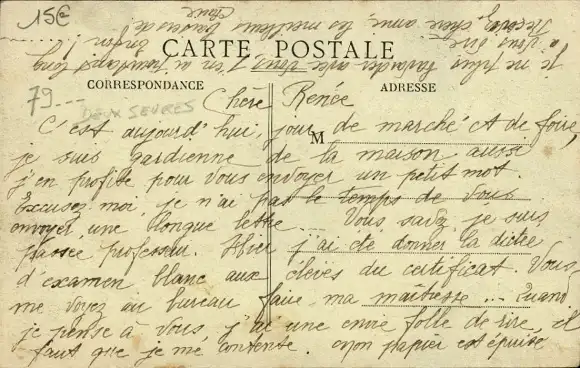 15€
CARTE POSTALE
CORRESPONDANCE
ADRESSE
79 ---
DEUX SEVRES
Chère Renée
C'est aujourd'hui, jour de marché et de foire,
M
je suis gardienne de la maison aussi
j'en profite pour vous envoyer un petit mot.
Excusez moi, je n'ai pas le temps de vous
envoyer une longue lettre... Vous savez je suis
passée professeur. Hier j'ai été donner la dictée
d'examen blanc aux élèves du certificat. Vous
me voyez au bureau faire ma maîtresse... Quand
je pense à vous, j'ai une envie folle de rire, il
faut que je me contente. Mon papier est épuisé
je ne puis bavarder avec vous j'en ai pourtant long
à vous dire
chère amie, les meilleurs baisers de